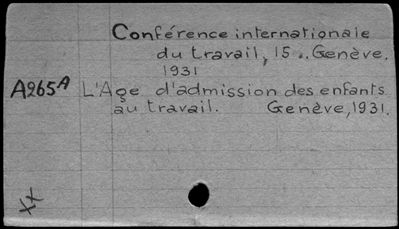 Conférence internationale
du travail, 15.. Genève.
1931
A265A L'Age d'admission des enfants
au travail. Genève, 1931.
XX